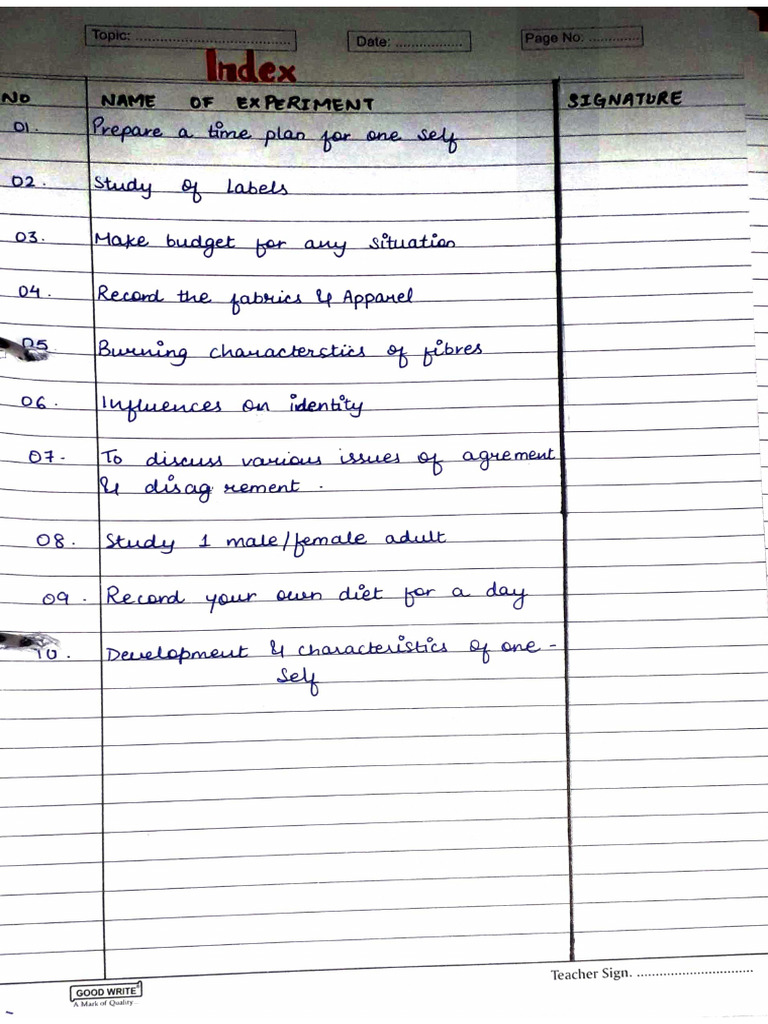 Topic: ..................................... Date: ................. Page No: .............
Index
NO NAME OF EXPERIMENT SIGNATURE
01. Prepare a time plan for one self
02. Study of Labels
03. Make budget for any situation
04. Record the fabrics & Apparel
05. Burning characterstics of fibres
06. Influences on identity
07. To discuss various issues of agrement
& disagrement.
08. Study 1 male/female adult
09. Record your own diet for a day
10. Development & characteristics of one-
self
Teacher Sign. ................................
GOOD WRITE
A Mark of Quality...